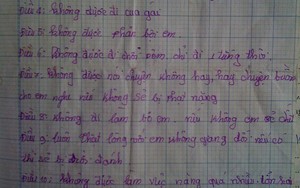 Điều 4: Không được đi cua gái
Điều 5: Không được phản bội em
Điều 6: Không được đi chơi đêm, chỉ đi 1 tiếng thôi
Không được nói chuyện không hay, hay chuyện buồn
cho em nghe nếu không sẽ bị phạt nặng
Điều 8: Không đi làm bỏ em nếu không em sẽ chết
Điều 9: luôn thật lòng với em không gian dối nếu có
thì sẽ bị
Điều 10: Không được làm việc nặng quá nhiều